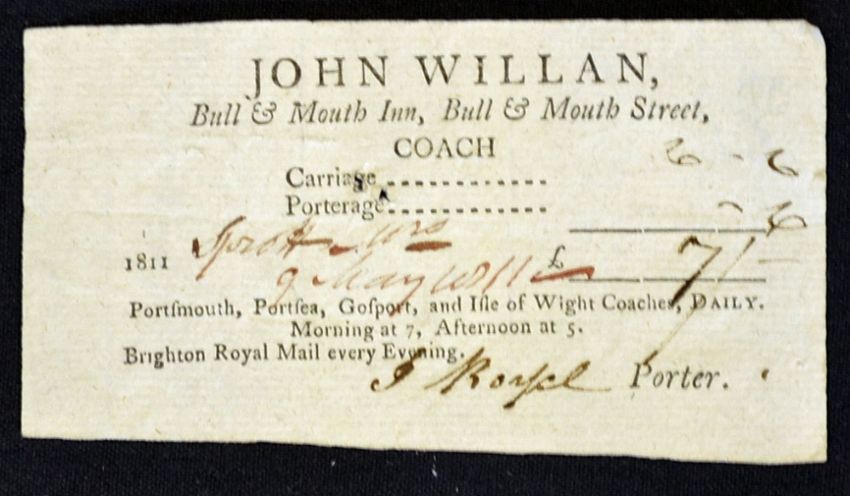 JOHN WILLAN,
Bull & Mouth Inn, Bull & Mouth Street,
COACH
Carriage ............ 6 - 6
Porterage............ - 6
1811 £ 7/-
9 May 1811
Portſmouth, Portſea, Goſport, and Iſle of Wight Coaches, DAILY.
Morning at 7, Afternoon at 5.
Brighton Royal Mail every Evening.
J Porter.